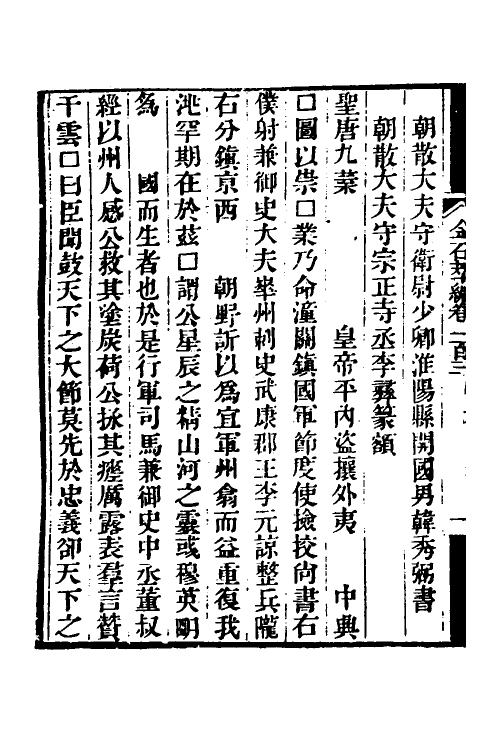 朝散大夫守衛尉少卿淮陽縣開國男韓秀弼書
朝散大夫守宗正寺丞李彝篆額
聖唐九葉　皇帝平內盜攘外夷　中興
□圖以崇□業乃命潼關鎮國軍節度使撿挍尚書右
僕射兼御史大夫華州刺史武康郡王李元諒整兵隴
右分鎮京西　朝野訢以為宜軍州翕而益重復我
洮罕期在於茲□謂公星辰之精山河之靈或穆英明
為　國而生者也於是行軍司馬兼御史中丞董叔
經以州人感公救其塗炭荷公拯其瘥厲露表羣言贊
干雲□曰臣聞鼓天下之大節莫先於忠義卻天下之
金石萃編卷一百三